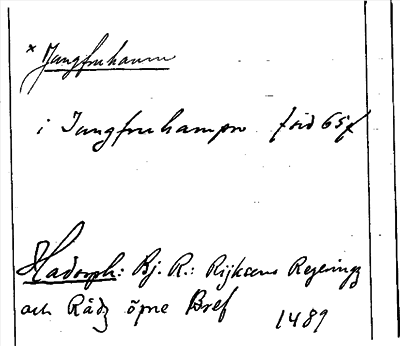 × Jungfruhamn
i Jungfruhampn [sid 65]
Hadorph: Bj. R.: Rijksens Regerings
och Rådz öpne Bref
1489